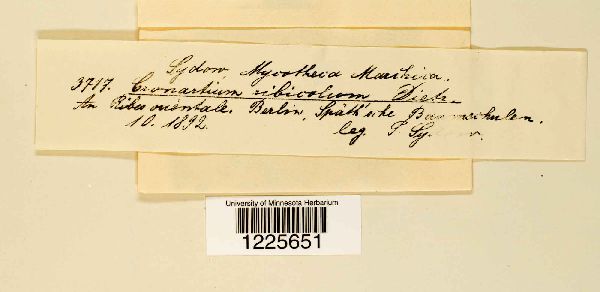 Sydow, Mycotheca Marchica.
3717. Cronartium ribicolum Dietr.
An Ribes orientale. Berlin, Späth'sche Baumschulen.
10. 1892. leg. P. Sydow.
University of Minnesota Herbarium
1225651